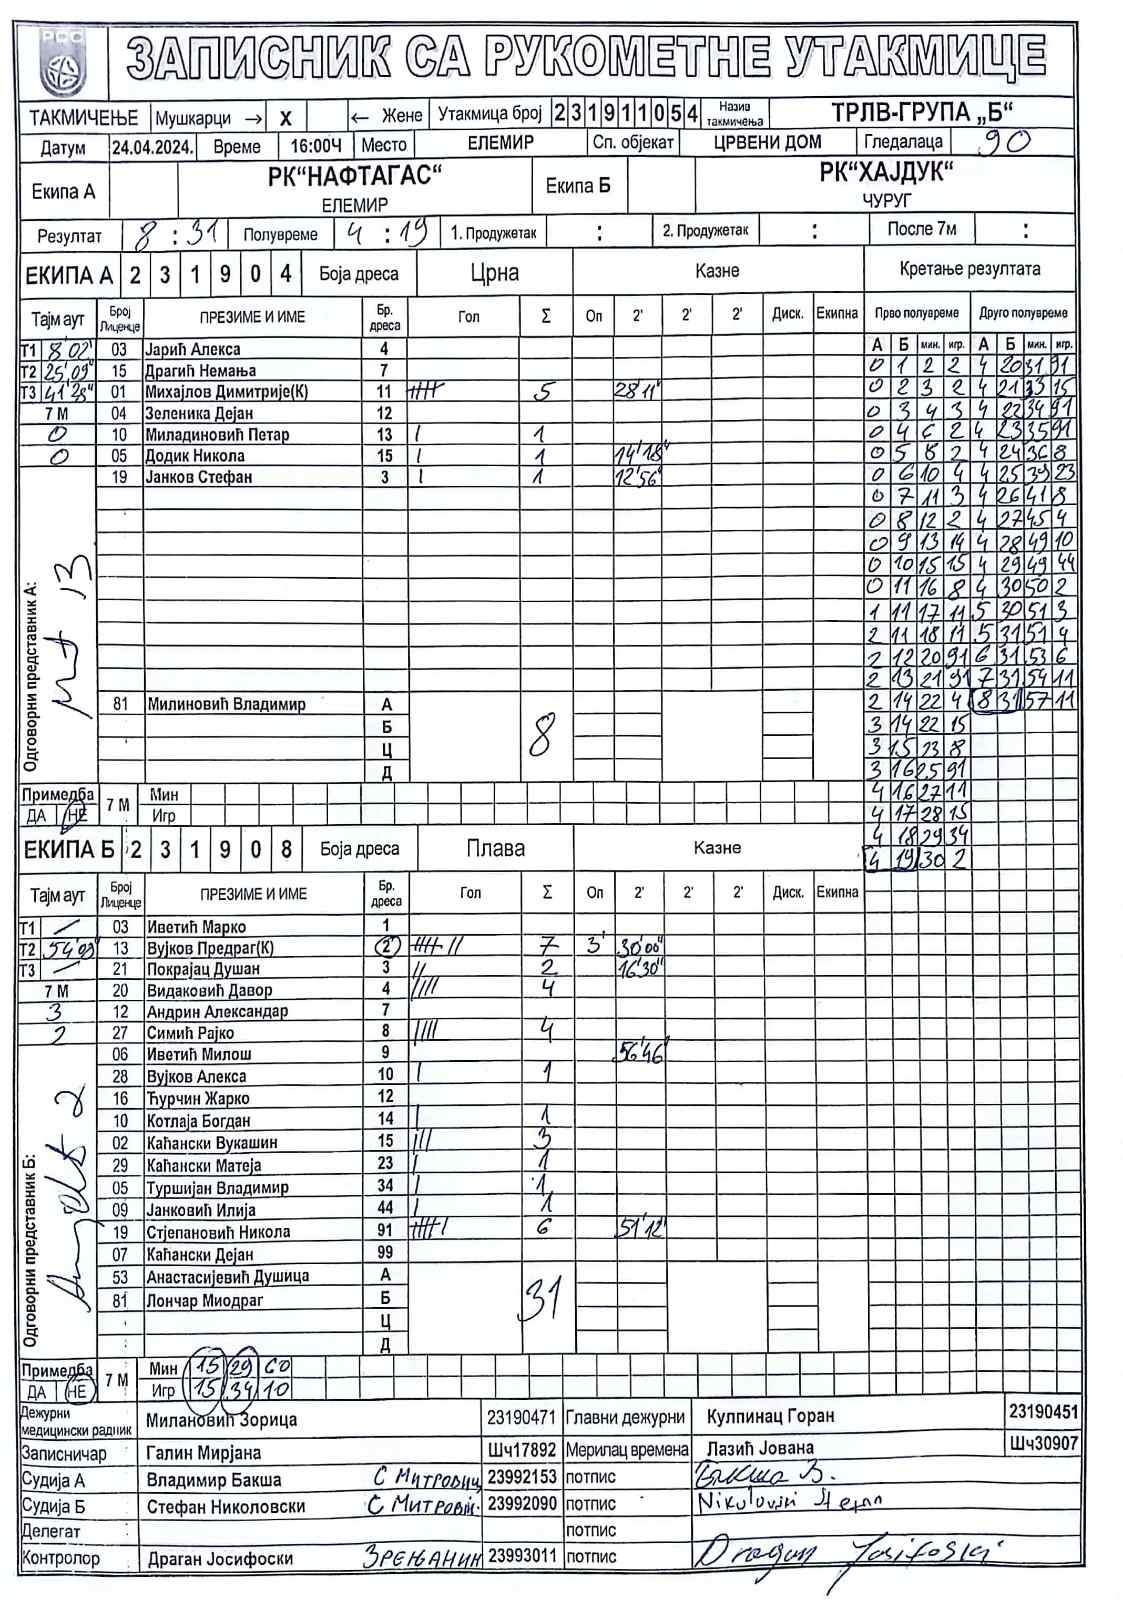 РСС
ЗАПИСНИК СА РУКОМЕТНЕ УТАКМИЦЕ
ТАКМИЧЕЊЕ Мушкарци → X ← Жене Утакмица број 2 3 1 9 1 1 0 5 4 Назив такмичења ТРЛВ-ГРУПА „Б“
Датум 24.04.2024. Време 16:00Ч Место ЕЛЕМИР Сп. објекат ЦРВЕНИ ДОМ Гледалаца 90
Екипа А РК“НАФТАГАС“ ЕЛЕМИР Екипа Б РК“ХАЈДУК“ ЧУРУГ
Резултат 8 : 31 Полувреме 4 : 19 1. Продужетак : 2. Продужетак : После 7м :
ЕКИПА А 2 3 1 9 0 4 Боја дреса Црна Казне Кретање резултата
Тајм аут Број Лиценце ПРЕЗИМЕ И ИМЕ Бр. дреса Гол Σ Оп 2' 2' 2' Диск. Екипна Прво полувреме Друго полувреме
Т1 8'02" 03 Јарић Алекса 4 А Б мин. игр. А Б мин. игр.
Т2 25'09" 15 Драгић Немања 7 0 1 2 2 4 20 31 91
Т3 41'28" 01 Михајлов Димитрије(К) 11 5 28'11" 0 2 3 2 4 21 33 15
7 М 04 Зеленика Дејан 12 0 3 4 3 4 22 34 91
0 10 Миладиновић Петар 13 | 1 0 4 6 2 4 23 35 91
0 05 Додик Никола 15 | 1 14'18" 0 5 8 2 4 24 36 8
19 Јанков Стефан 3 | 1 12'56" 0 6 10 4 4 25 39 23
0 7 11 3 4 26 41 8
0 8 12 2 4 27 45 4
0 9 13 14 4 28 49 10
0 10 15 15 4 29 49 44
0 11 16 8 4 30 50 2
1 11 17 11 5 30 51 3
2 11 18 11 5 31 51 4
2 12 20 91 6 31 53 6
2 13 21 91 7 31 54 11
Одговорни представник А:
81 Милиновић Владимир А 2 14 22 4 8 31 57 11
Б 8 3 14 22 15
Ц 3 15 23 8
Д 3 16 25 91
Примедба 7 М Мин 4 16 27 11
ДА НЕ Игр 4 17 28 15
4 18 29 34
ЕКИПА Б 2 3 1 9 0 8 Боја дреса Плава Казне 4 19 30 2
Тајм аут Број Лиценце ПРЕЗИМЕ И ИМЕ Бр. дреса Гол Σ Оп 2' 2' 2' Диск. Екипна
Т1 — 03 Иветић Марко 1
Т2 54'09" 13 Вујков Предраг(К) 2 7 3' 30'00"
Т3 — 21 Покрајац Душан 3 || 2 16'30"
7 М 20 Видаковић Давор 4 |||| 4
3 12 Андрин Александар 7
2 27 Симић Рајко 8 |||| 4
06 Иветић Милош 9 56'46"
28 Вујков Алекса 10 | 1
16 Ћурчин Жарко 12
10 Котлаја Богдан 14 | 1
02 Каћански Вукашин 15 ||| 3
29 Каћански Матеја 23 | 1
05 Туршијан Владимир 34 | 1
09 Јанковић Илија 44 | 1
19 Стјепановић Никола 91 6 51'12"
07 Каћански Дејан 99
Одговорни представник Б:
53 Анастасијевић Душица А
81 Лончар Миодраг Б 31
Ц
Д
Примедба 7 М Мин 15 29 60
ДА НЕ Игр 15 34 10
Дежурни медицински радник Милановић Зорица 23190471 Главни дежурни Кулпинац Горан 23190451
Записничар Галин Мирјана Шч17892 Мерилац времена Лазић Јована Шч30907
Судија А Владимир Бакша С МИТРОВИЦ 23992153 потпис Бакша В.
Судија Б Стефан Николовски С МИТРОВИ. 23992090 потпис
Делегат потпис
Контролор Драган Јосифоски ЗРЕЊАНИН 23993011 потпис Dragan Josifoski